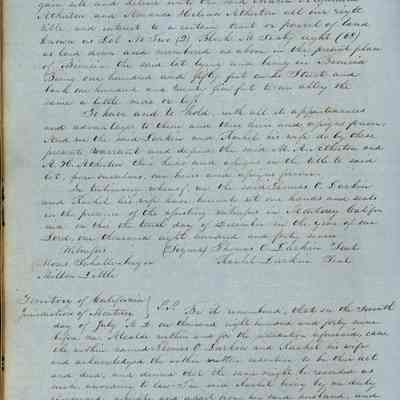 gain sell and deliver unto the said Maria
Atherton and Amanda Helena Atherton all our right
title and interest to a certain tract or parcel of land
known as Lot No Two (2) Block No Sixty eight (68)
as laid down and numbered as above in the present plan
of Benicia the said lot lying and being in Benicia
Being one hundred and fifty feet on the Street and
back one hundred and twenty five feet to an alley the
same a little more or less
To have and to hold, with all its appurtenances
and advantages to them and their heirs and assigns forever.
And we the said Larkin and Rachel his wife do by these
presents warrant and defend the said M. A. Atherton and
A. H. Atherton their heirs and assigns in the title to said
lot, from ourselves, our heirs and assigns forever.
In testimony whereof, we the said Thomas O. Larkin
and Rachel his wife have hereunto set our hands and seals
in the presence of the witnesses in Monterey Califor
nia on this the tenth day of December in the year of our
Lord, one thousand eight hundred and forty seven
Witnesses (Signed) Thomas O. Larkin Seal
Moses Schallenberger Rachel Larkin Seal
Milton Little
Territory of California
Jurisdiction of Monterey } S.S. Be it remembered, that on the Seventh
day of July A.D. one thousand eight hundred and forty nine
before me Alcalde within and for the jurisdiction aforesaid, came
the within named Thomas O. Larkin and Rachel his wife
and acknowledged the within written indenture to be their act
and deed, and desired that the same might be recorded as
such according to law. The said Rachel being by me duly
examined separate and apart from her said husband, and